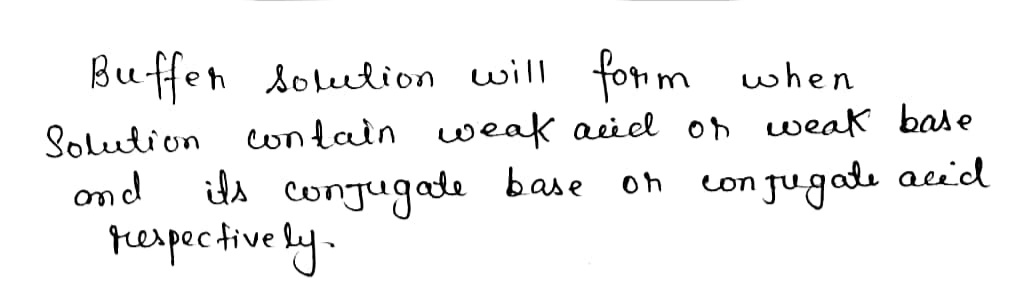 Buffer solution will form when
Solution contain weak acid or weak base
and its conjugate base or conjugate acid
respectively.